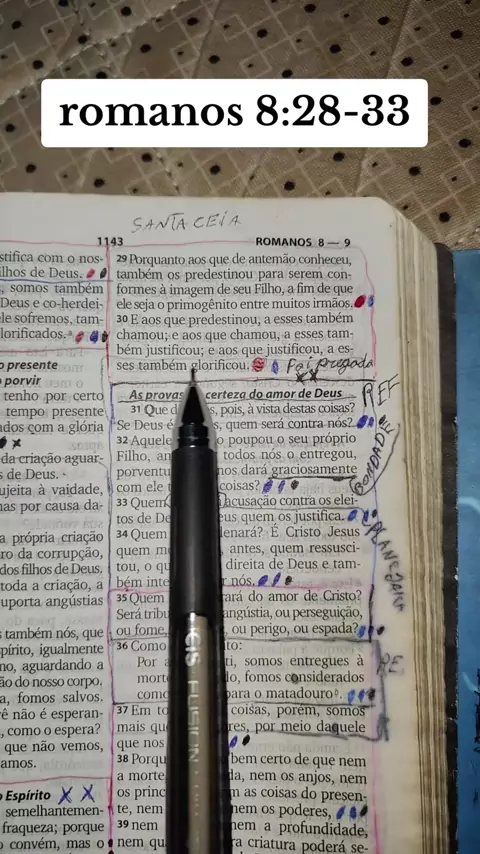 romanos 8:28-33
SANTA CEIA
1143
ROMANOS 8 — 9
stifica com o nos-
ilhos de Deus.
, somos também
Deus e co-herdei-
ele sofremos, tam-
lorificados.
o presente
o porvir
tenho por certo
tempo presente
ados com a glória
da criação aguar-
s de Deus.
ujeita à vaidade,
mas por causa da-
a própria criação
ro da corrupção,
dos filhos de Deus.
toda a criação, a
uporta angústias
as também nós, que
spírito, igualmente
mo, aguardando a
ão do nosso corpo.
a, fomos salvos.
vê não é esperan-
, como o espera?
que não vemos,
amos.
o Espírito
semelhantemen-
fraqueza; porque
o convém, mas o
29 Porquanto aos que de antemão conheceu,
também os predestinou para serem con-
formes à imagem de seu Filho, a fim de que
ele seja o primogênito entre muitos irmãos.
30 E aos que predestinou, a esses também
chamou; e aos que chamou, a esses tam-
bém justificou; e aos que justificou, a es-
ses também glorificou.
Foi pregada
As provas certeza do amor de Deus
31 Que pois, à vista destas coisas?
Se Deus é quem será contra nós?
32 Aquele poupou o seu próprio
Filho, todos nós o entregou,
porventura nos dará graciosamente
com ele coisas?
33 Quem acusação contra os elei-
tos de De eus quem os justifica.
34 Quem denará? É Cristo Jesus
quem mo antes, quem ressusci-
tou, o qu direita de Deus e tam-
bém inte r nós.
BONDADE
35 Quem rará do amor de Cristo?
Será tribu angústia, ou perseguição,
ou fome, ou perigo, ou espada?
36 Como to:
Por a ti, somos entregues à
morte lo, fomos considerados
como para o matadouro.
37 Em to coisas, porém, somos
mais que res, por meio daquele
que nos
38 Porqu bem certo de que nem
a morte da, nem os anjos, nem
os princ m as coisas do presen-
te, nem nem os poderes,
39 nem nem a profundidade,
nem qu ra criatura poderá se-
CIS FUSION